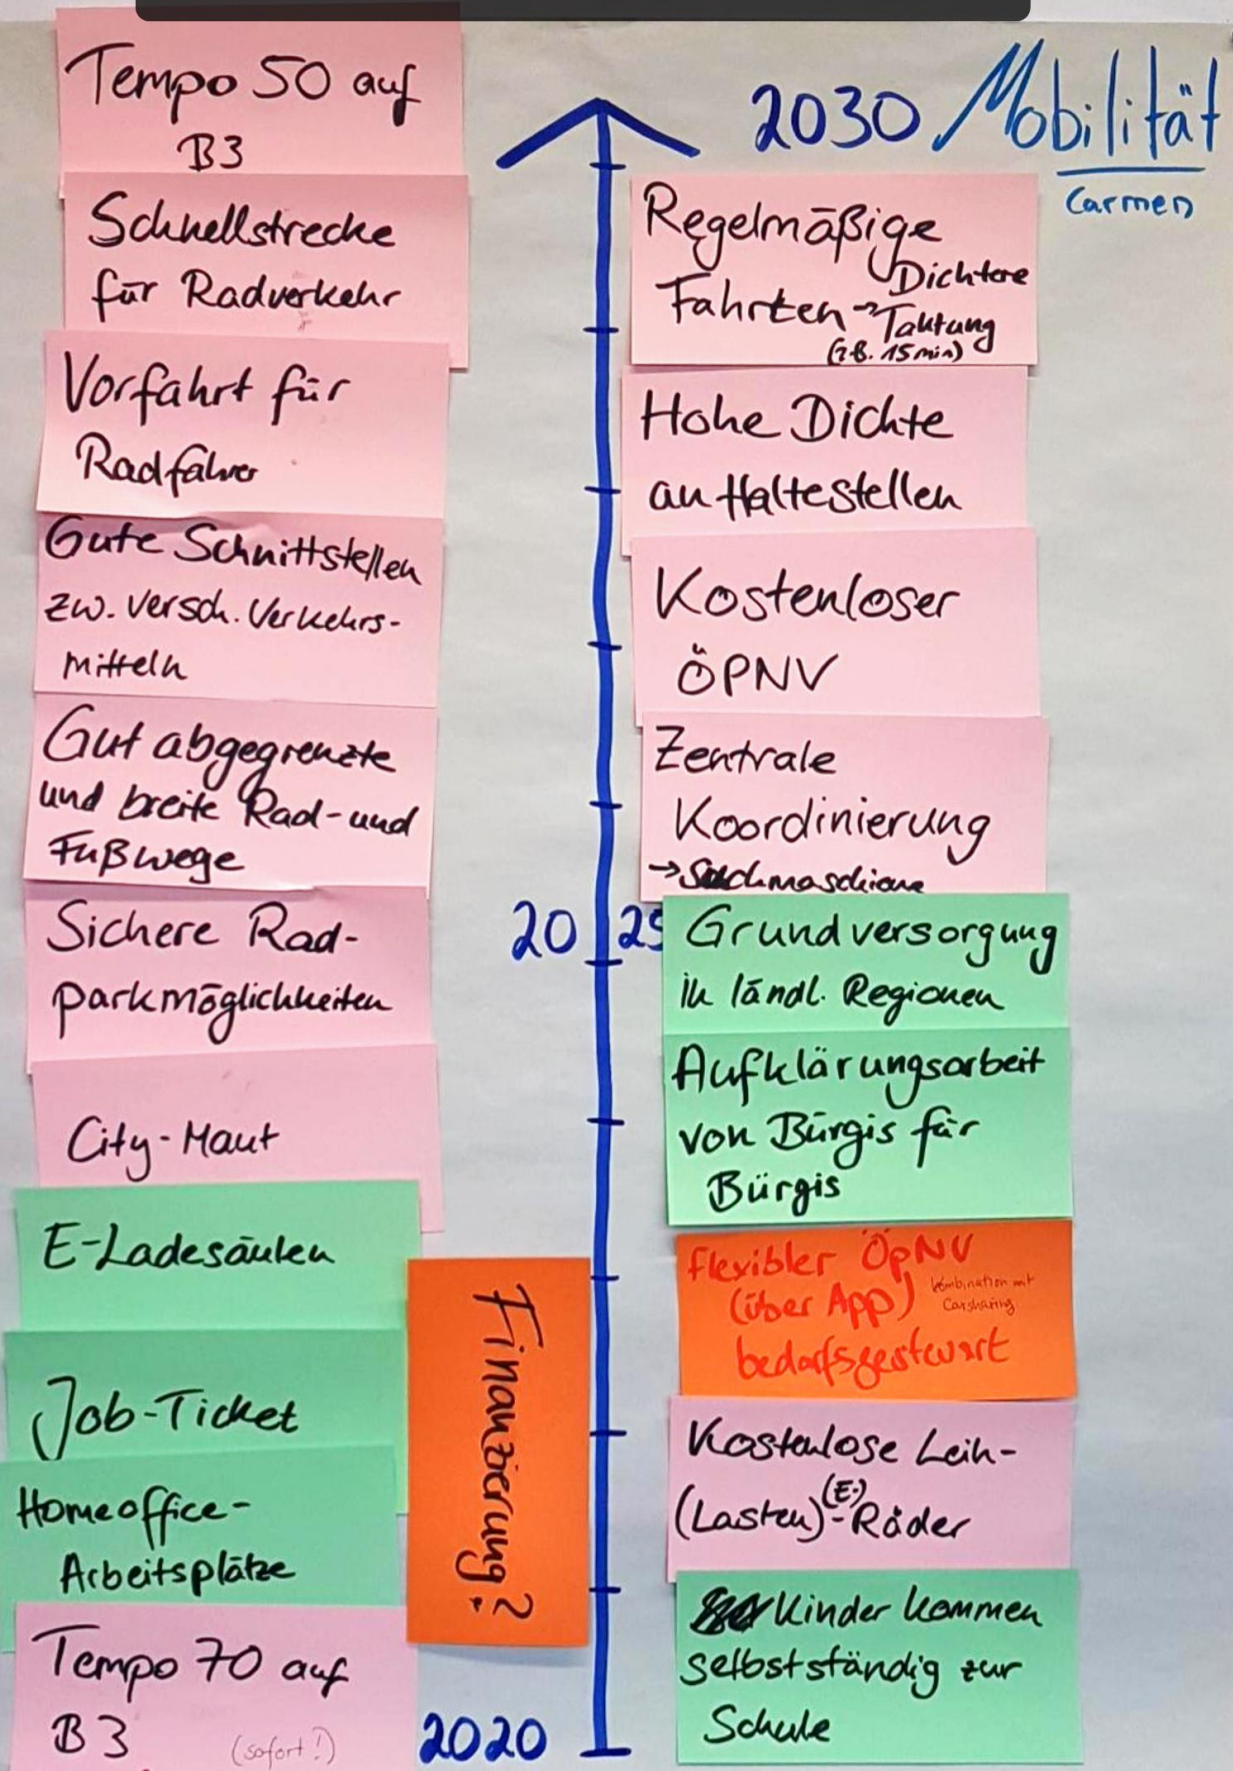 2030 Mobilität
Carmen
Tempo 50 auf
B3
Schnellstrecke
für Radverkehr
Vorfahrt für
Radfahrer
Gute Schnittstellen
zw. versch. Verkehrs-
mitteln
Gut abgegrenzte
und breite Rad- und
Fußwege
Sichere Rad-
parkmöglichkeiten
City-Maut
E-Ladesäulen
Job-Ticket
Homeoffice-
Arbeitsplätze
Tempo 70 auf
B3 (sofort!)
Finanzierung?
2025
2020
Regelmäßige
Fahrten → Dichtere
Taktung
(z.B. 15 min)
Hohe Dichte
an Haltestellen
Kostenloser
ÖPNV
Zentrale
Koordinierung
→ Suchmaschine
Grundversorgung
in ländl. Regionen
Aufklärungsarbeit
von Bürgis für
Bürgis
flexibler ÖPNV
(über App) Kombination mit
Carsharing
bedarfsgesteuert
Kostenlose Leih-
(Lasten)-(E-)Räder
Kinder kommen
selbstständig zur
Schule